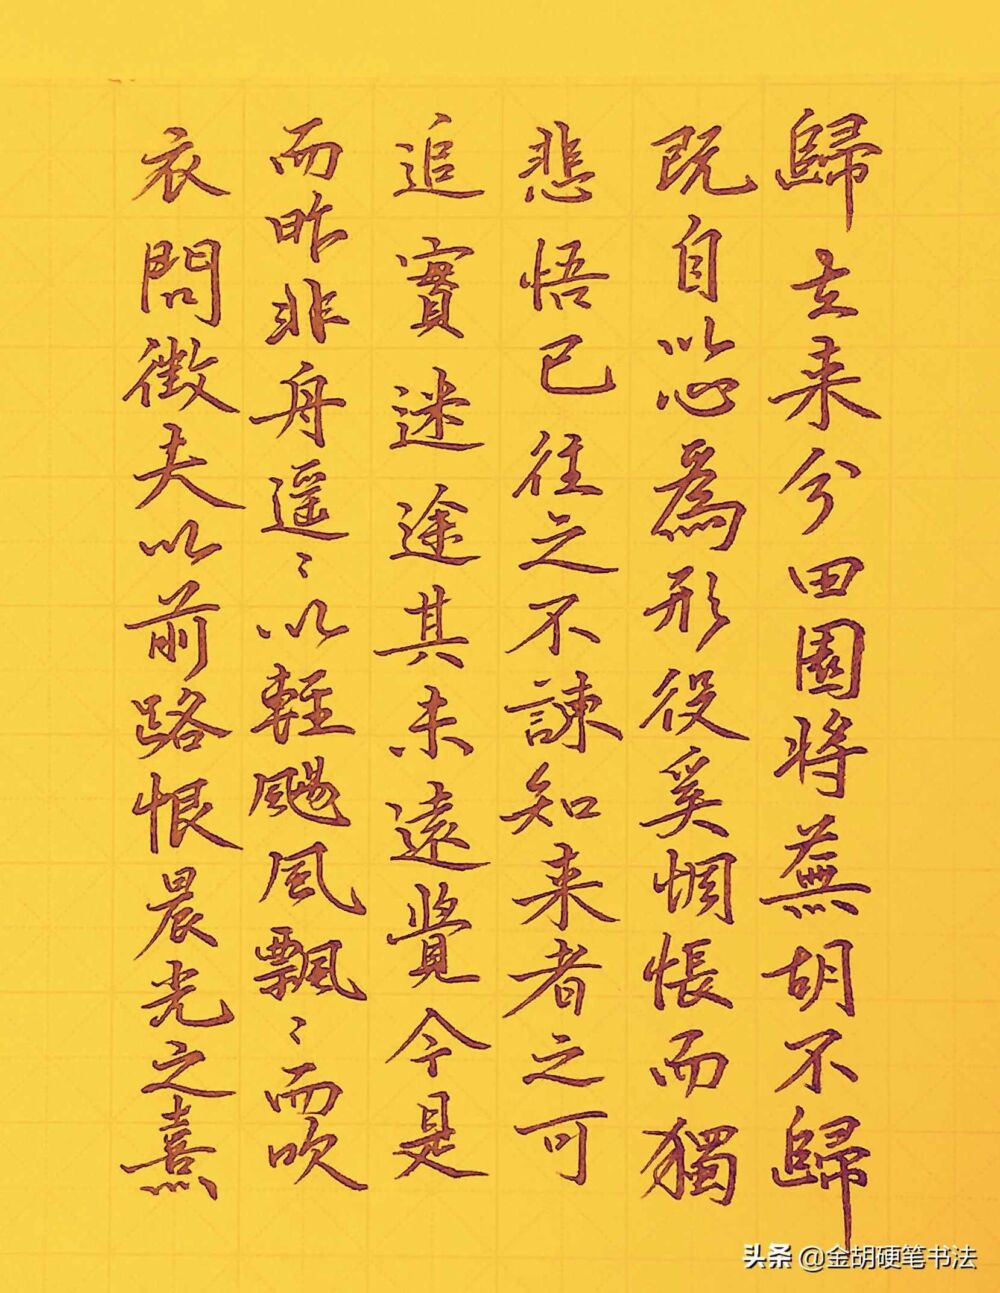 歸去来兮田園將蕪胡不歸
既自以心為形役奚惆悵而獨
悲悟已往之不諫知来者之可
追實迷途其未遠覺今是
而昨非舟遥〻以輕颺風飄〻而吹
衣問徵夫以前路恨晨光之熹
头条 @金胡硬笔书法